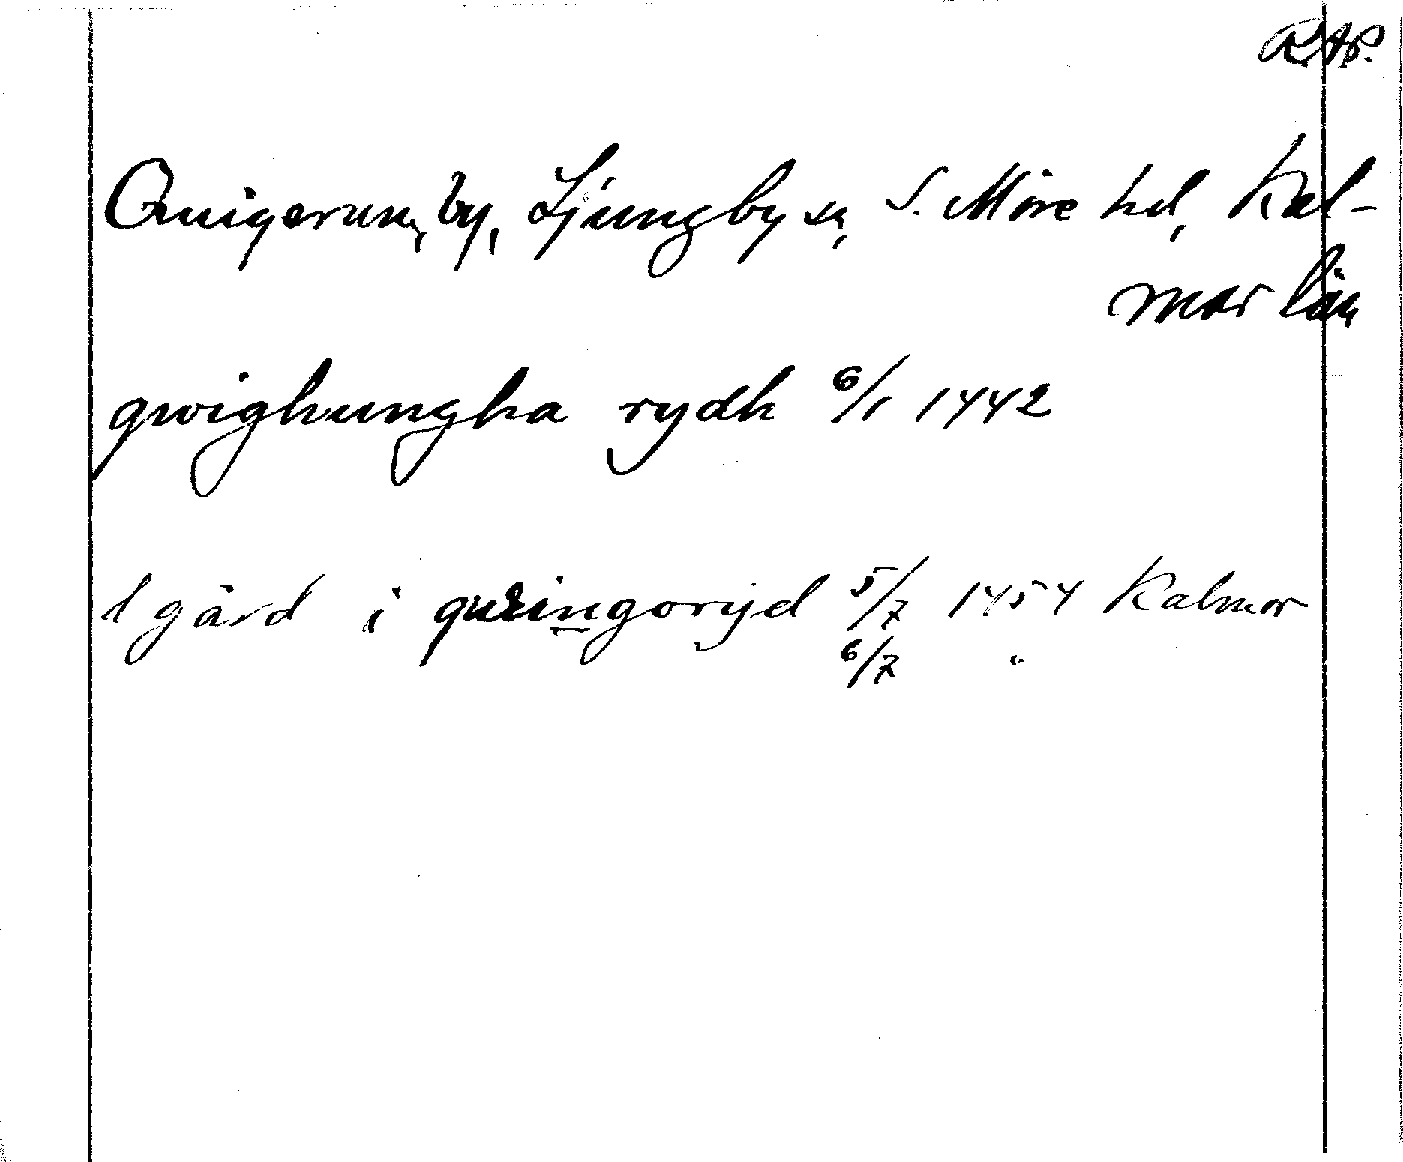 RAP.
Quigerum, by, Ljungby sn, S. Möre hd, Kal-
mar län
qwighungha rydh 6/1 1442
1 gård i qwingoryd 5/7 1454 Kalmar
6/7 "